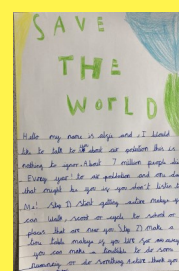 SAVE
THE
WORLD
Hello my name is and I Would
like to talk to about air polution this is
nothing to ignor. About 7 million people die
Every year to air polution and one day
that might be you if you don't listen to
Me! Step 1) Start getting active makeys you
can Walk, scoot or cycle to school or
places that are near you. Step 2) Make a
time table makeys if you live far away
you can make a timetable to do some
or do something active thank you